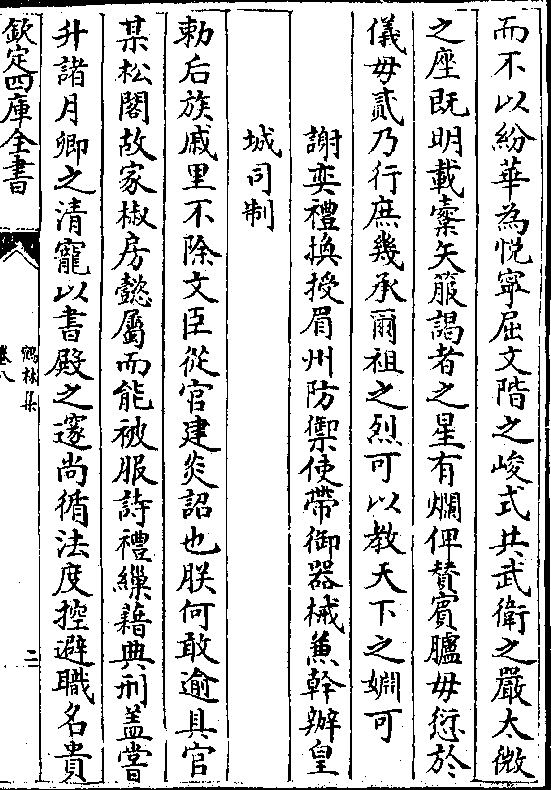 而不以紛華為悅寧屈文階之峻式共武衛之嚴太微
之座既明載櫜矢箙謁者之星有爛俾賛賓臚毋愆於
儀毋貳乃行庶幾承爾祖之烈可以教天下之婣可
謝奕禮換授眉州防禦使帶御器械兼幹辦皇
城司制
勅后族戚里不除文臣從官建炎詔也朕何敢逾具官
某松閣故家椒房懿屬而能被服詩禮繅藉典刑盖嘗
升諸月卿之清寵以書殿之邃尚循法度控避職名貴
欽定四庫全書
鶴林集
卷八
二